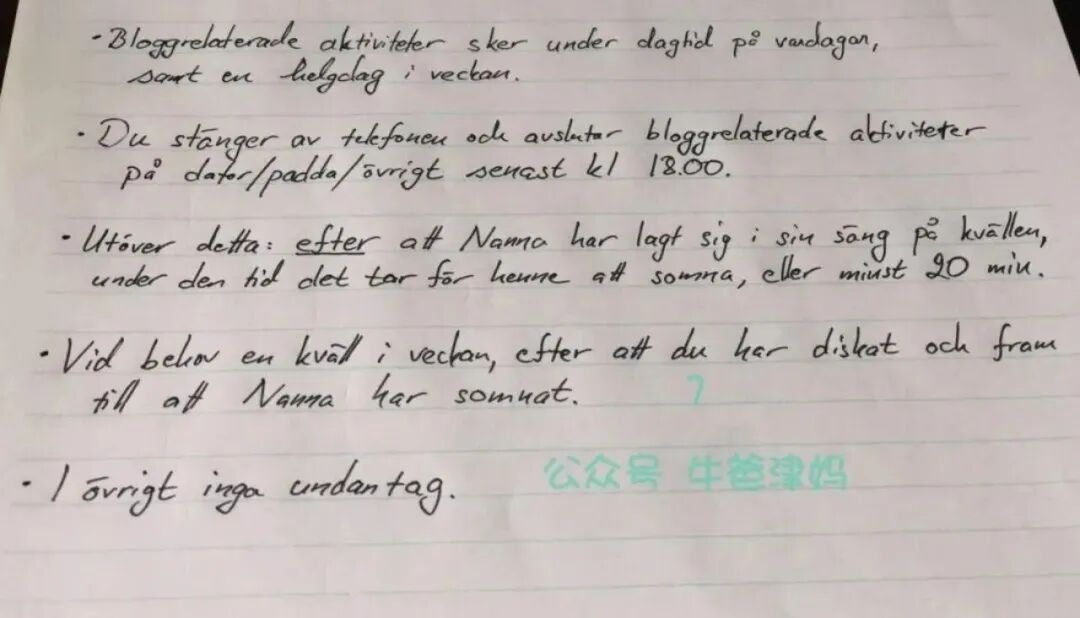 · Bloggrelaterade aktiviteter sker under dagtid på vardagar,
samt en helgdag i veckan.
· Du stänger av telefonen och avslutar bloggrelaterade aktiviteter
på dator/padda/övrigt senast kl 18.00.
· Utöver detta: efter att Nanna har lagt sig i sin säng på kvällen,
under den tid det tar för henne att somna, eller minst 20 min.
· Vid behov en kväll i veckan, efter att du har diskat och fram
till att Nanna har somnat.
· I övrigt inga undantag.
公众号 牛爸津妈